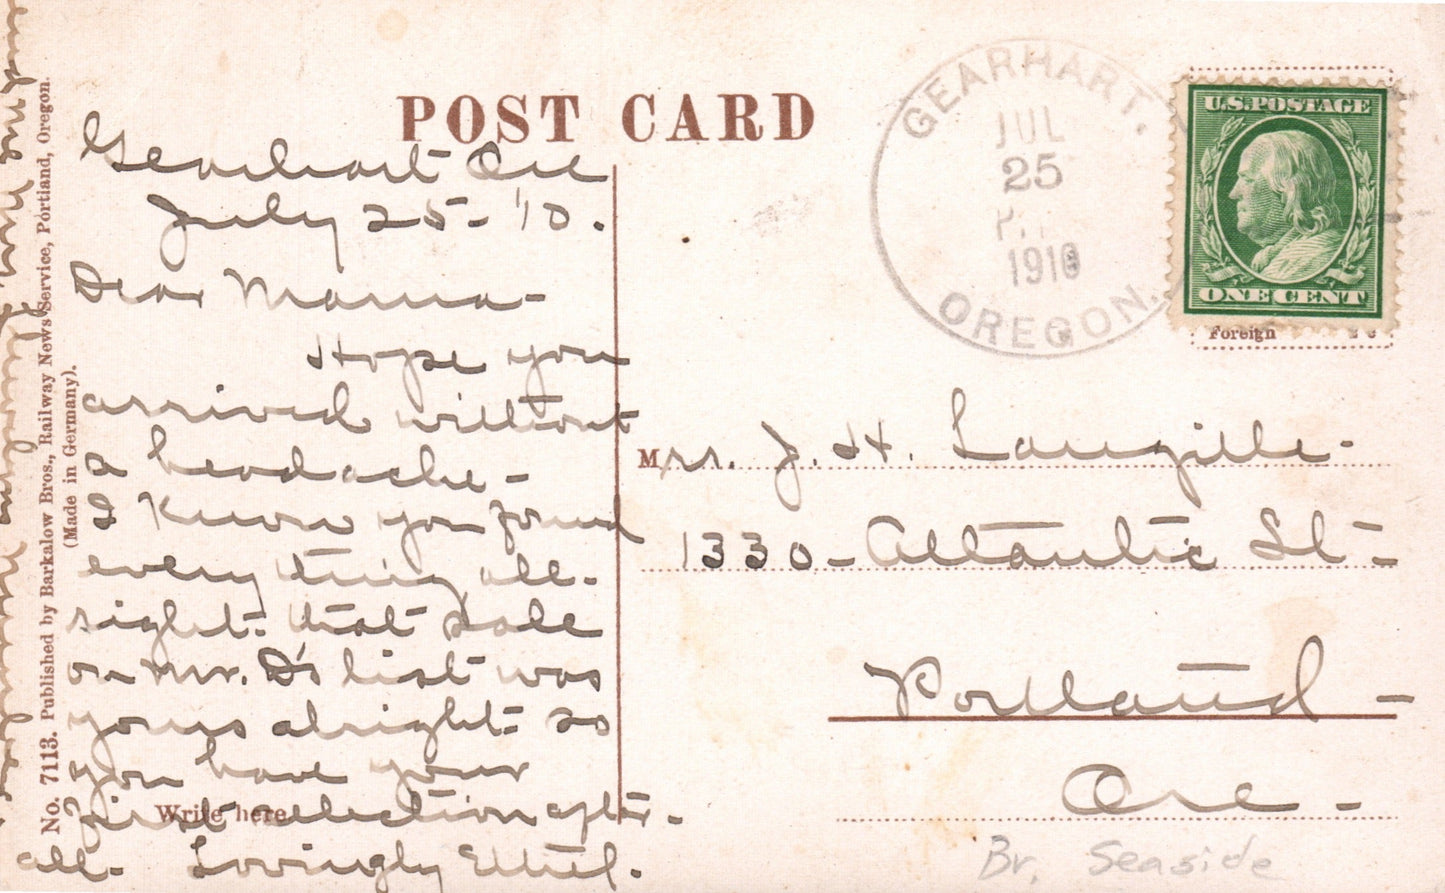 POST CARD
GEARHART.
JUL
25
1910
OREGON.
U.S. POSTAGE
ONE CENT
Foreign 2 c
Gearhart Ore
July 25-'10.
Dear Mama-
Hope you
arrived without
a headache-
I know you found
every thing all-
right. that sale
on Mr. D's list was
yours alright- so
you have your
first selection after-
all- Lovingly Ethel.
Write here
Mrs. J. H. Langille-
1330-Atlantic St-
Portland-
Ore-
Br, Seaside
No. 7113. Published by Barkalow Bros., Railway News Service, Portland, Oregon.
(Made in Germany).